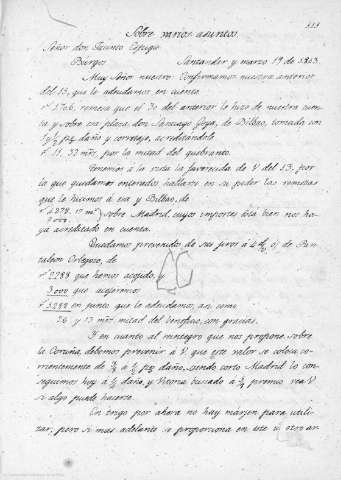 Sobre varios asuntos.
Señor don Jacinto
Burgos Santander y marzo 19 de 1853.
Muy Señor nuestro: Confirmamos nuestra anterior
del 15, que le adeudamos en cuenta
rs 3706, remesa que el 30 del anterior le hizo de nuestra cuen
ta y sobre esa plaza don Santiago Goya, de Bilbao, tomada con
p% daño y corretaje, acreditándole
rs 11, 33 mrs, por la mitad del quebranto.
Tenemos á la vista la favorecida de V del 13, por
la que quedamos enterados hallarse en su poder las remesas
que le hicimos á esa y Bilbao, de
rs 4878. 17 ms
sobre Madrid, cuyos importes está bien nos ha
ya acreditado en cuenta.
Quedamos prevenidos de sus giros á 4 d/ o/ de Pan
taleon de
rs 2288 que hemos acogido, y
3000 que acogeremos
rs 5288 en junto que le adeudamos, así como
26 y 13 mrs mitad del beneficio, con gracias.
Y en cuanto al reintegro que nos propone sobre
la Coruña, debemos prevenir á V que este valor se coloca co-
rrientemente de á p% daño, siendo corto Madrid lo con
seguimos hoy á ½ daño, y Vitoria buscado á premio vea V
si algo puede hacerse.
En trigo por ahora no hay márjen para utili-
zar, pero si mas adelante se proporciona en este ú otro ar-